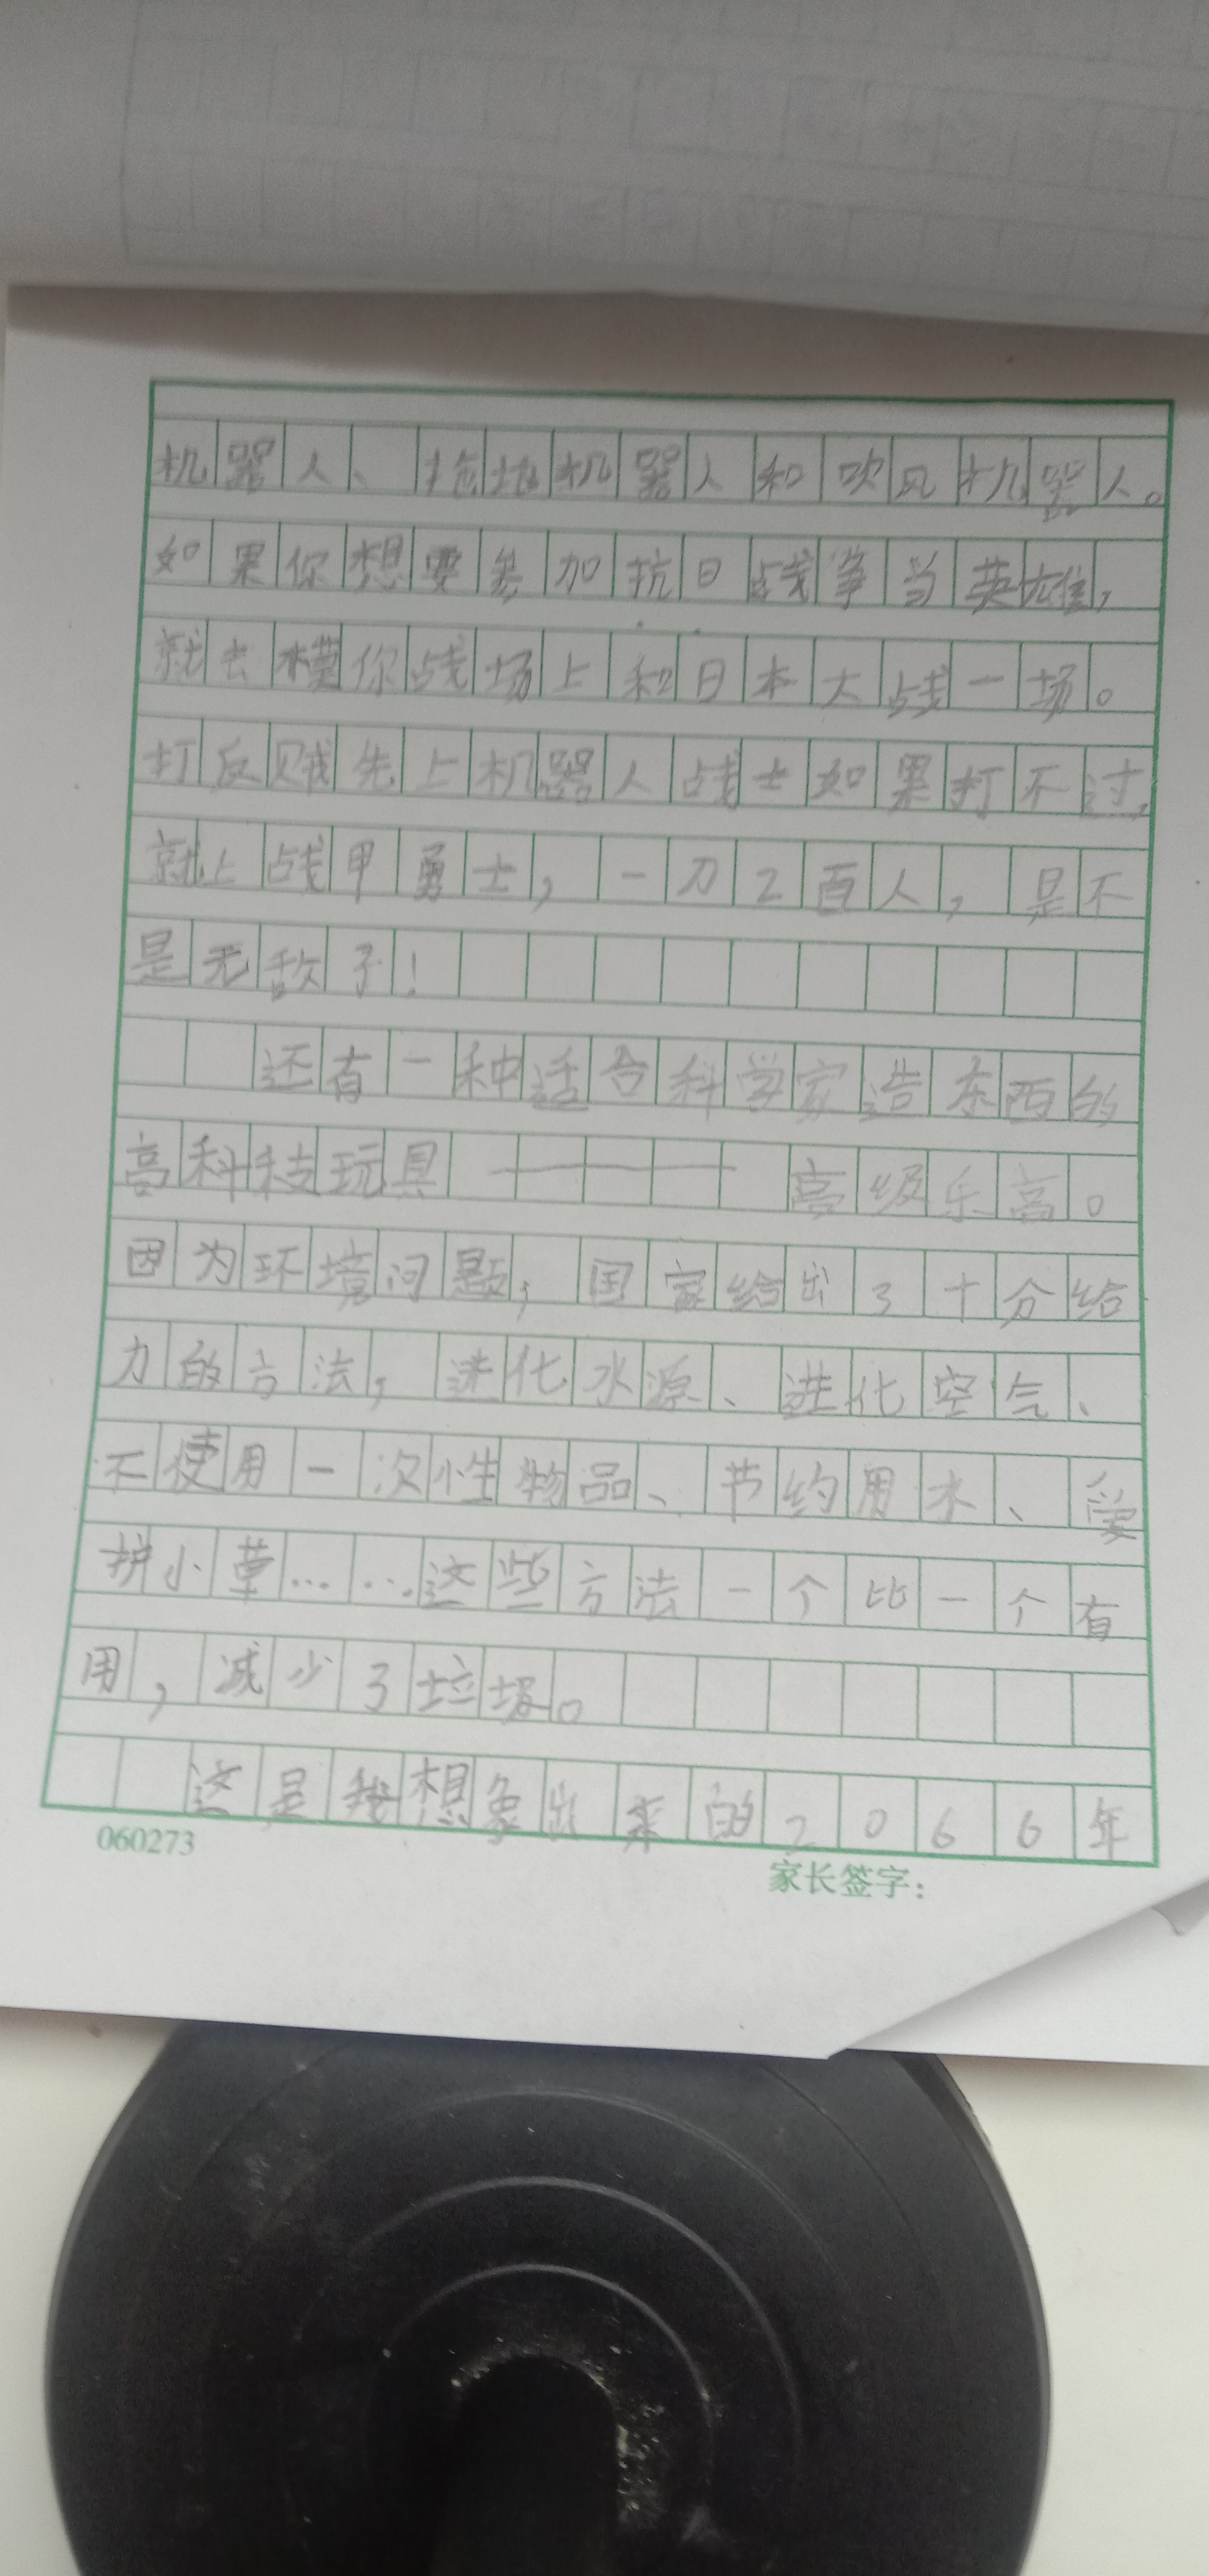 机器人、拖地机器人和吹风机器人。
如果你想要参加抗日战争当英雄，
就去模你战场上和日本大战一场。
打反贼先上机器人战士如果打不过，
就上战甲勇士，一刀2百人，是不
是无敌了！
还有一种适合科学家造东西的
高科技玩具————高级乐高。
因为环境问题，国家给出了十分给
力的方法，进化水源、进化空气、
不使用一次性物品、节约用水、爱
护小草……这些方法一个比一个有
用，减少了垃圾。
这是我想象出来的2066年
060273
家长签字：